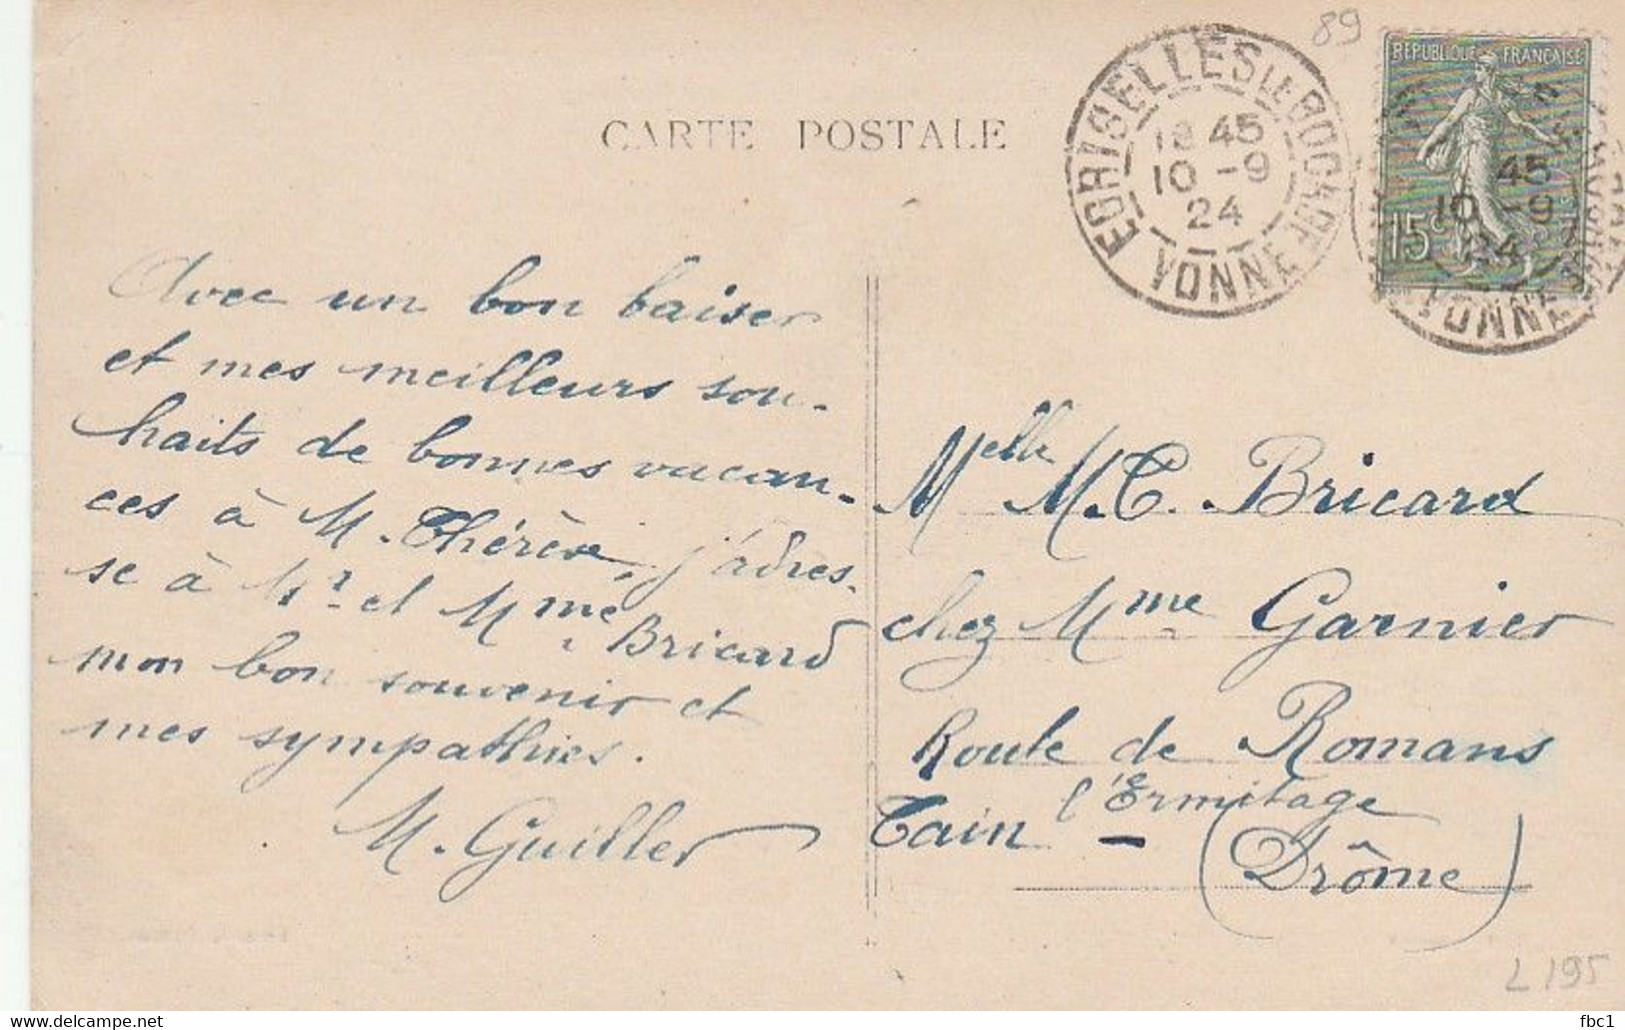 89
RÉPUBLIQUE FRANÇAISE
15c
CARTE POSTALE
EGRISELLES LE BOCAGE
18 45
10 -9
24
YONNE
45
10 -9
24
YONNE
Avec un bon baiser
et mes meilleurs sou-
haits de bonnes vacan-
ces à M. Thérèse, j'adres-
se à Mr et Mme Bricard
mon bon souvenir et
mes sympathies.
M. Guiller
Melle M.T. Bricard
chez Mme Garnier
Route de Romans
Tain l'Ermitage
(Drôme)
L 195
fbc1